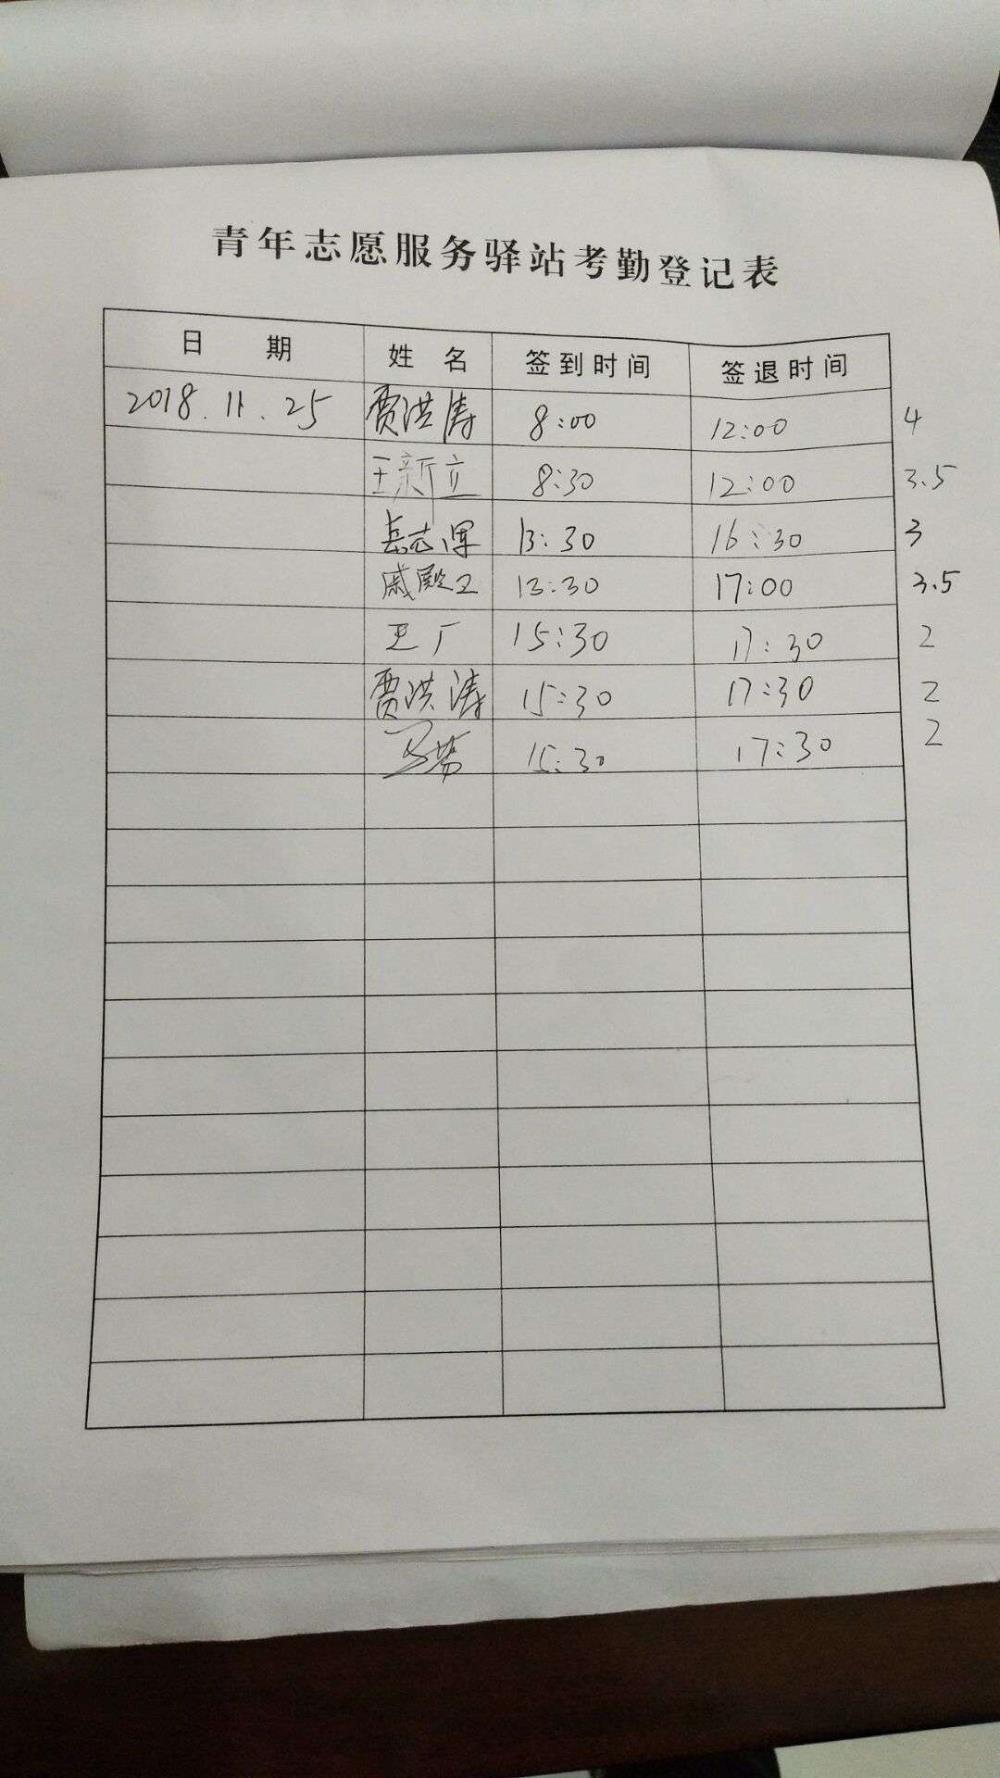 青年志愿服务驿站考勤登记表
日 期 姓 名 签到时间 签退时间
2018.11.25 贾洪涛 8:00 12:00 4
王新立 8:30 12:00 3.5
岳志军 13:30 16:30 3
戚殿卫 13:30 17:00 3.5
王厂 15:30 17:30 2
贾洪涛 15:30 17:30 2
15:30 17:30 2